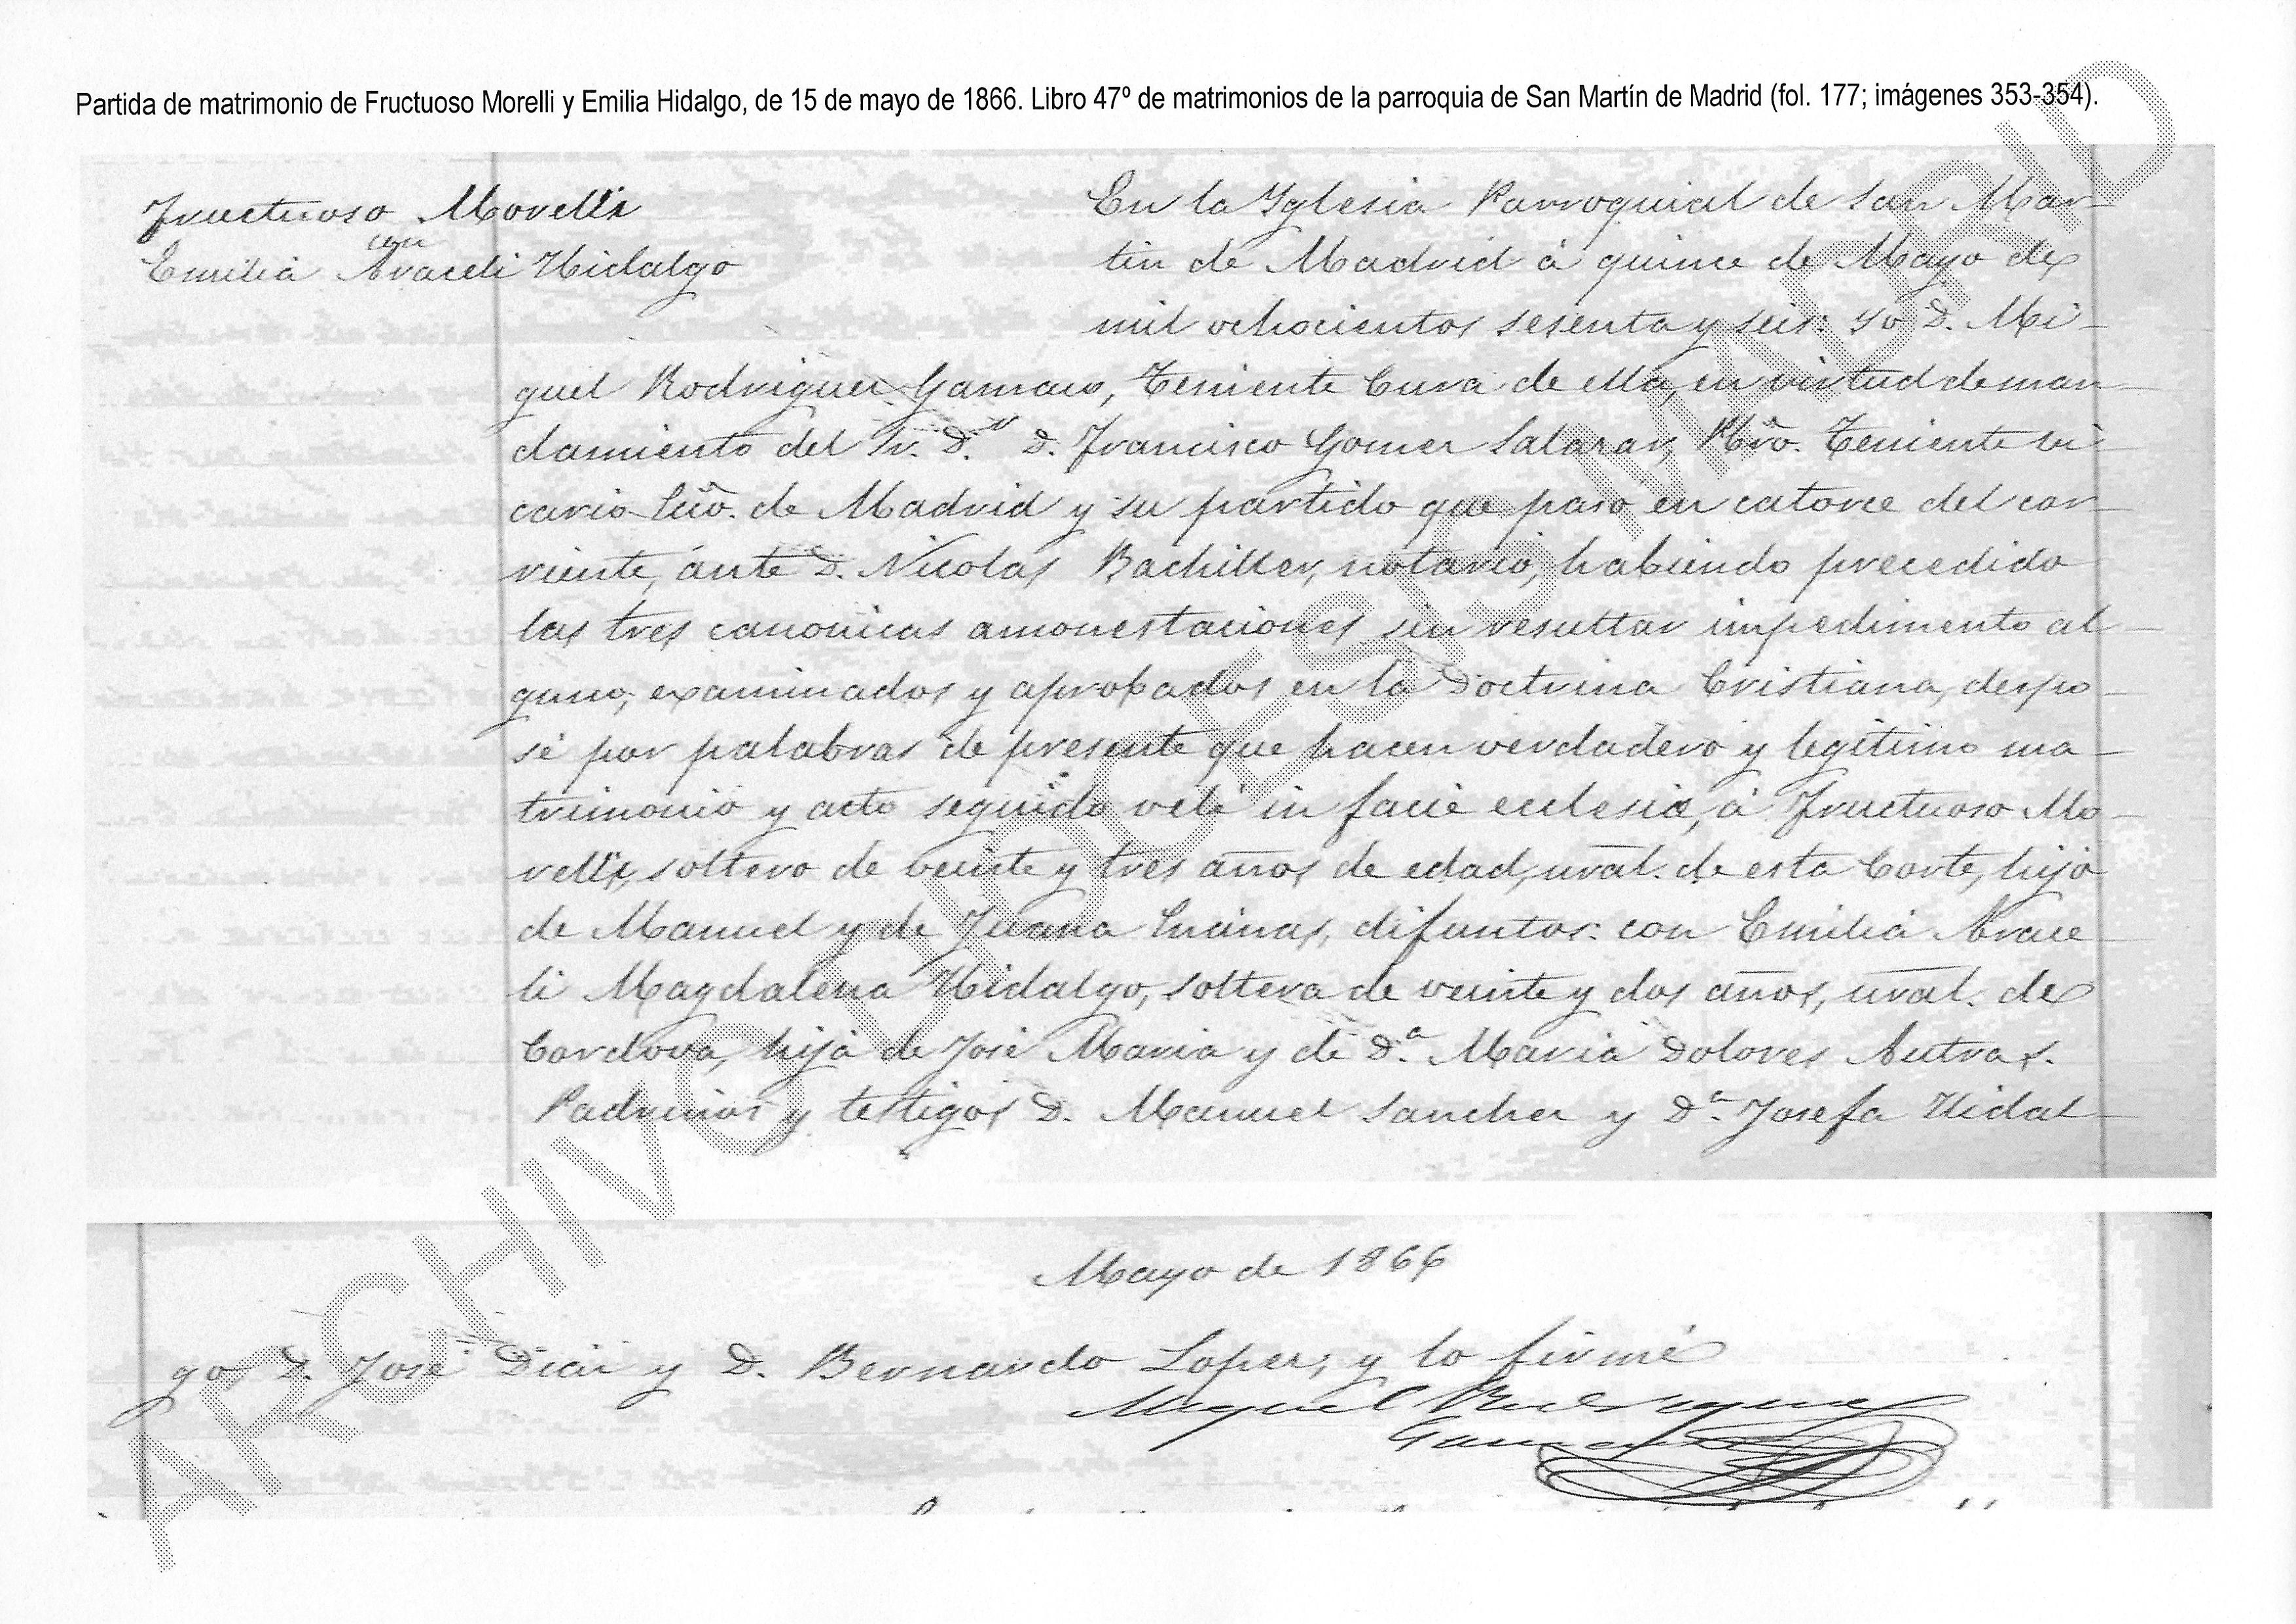 Partida de matrimonio de Fructuoso Morelli y Emilia Hidalgo, de 15 de mayo de 1866. Libro 47º de matrimonios de la parroquia de San Martín de Madrid (fol. 177; imágenes 353-354).
Fructuoso Morelli
con
Emilia Araceli Hidalgo
En la Yglesia Parroquial de San Mar-
tin de Madrid á quince de Mayo de
mil ochocientos sesenta y seis: yo D. Mi-
guel Rodriguez Gamazo, Teniente Cura de ella, en virtud de man-
damiento del Sr. D.r D. Francisco Gomez Salazar, Pbro. Teniente vi-
cario Ecco. de Madrid y su partido que paso en catorce del cor-
riente, ánte D. Nicolas Bachiller, notario, habiendo precedido
las tres canonicas amonestaciones sin resultar impedimento al-
guno; examinados y aprobados en la Doctrina Cristiana, despo-
sé por palabras de presente que hacen verdadero y legitimo ma-
trimonio y acto seguido velé in facie eclesiæ, á Fructuoso Mo-
relli, soltero de veinte y tres años de edad, nral. de esta Corte, hijo
de Manuel y de Juana Encinas, difuntos: con Emilia Arace-
li Magdalena Hidalgo, soltera de veinte y dos años, nral. de
Cordova, hija de José Maria y de D.a Maria Dolores Autras.
Padrinos y testigos D. Manuel Sanchez y D.a Josefa Hidal-
Mayo de 1866
go, D. José Diaz y D. Bernardo Lopez; y lo firmé
Miguel Rodriguez
Gamazo
ARCHIVO DIOCESIS MADRID